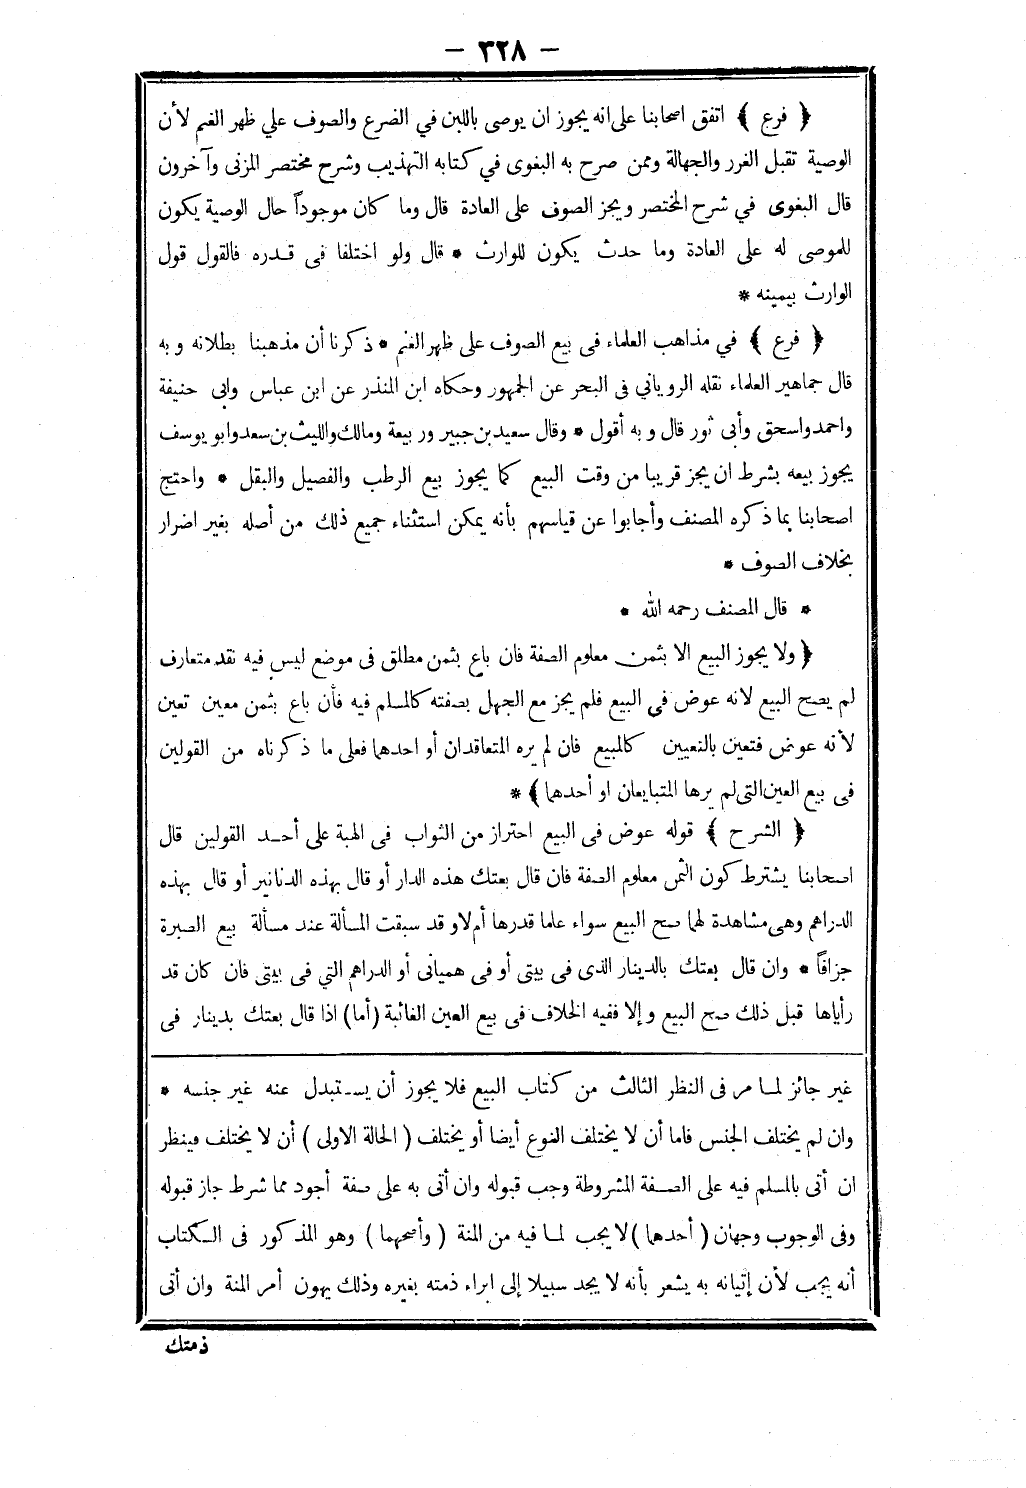 — ٣٢٨ —
﴿ فرع ﴾ اتفق اصحابنا على انه يجوز ان يوصى باللبن في الضرع والصوف علي ظهر الغنم لأن
الوصية تقبل الغرر والجهالة وممن صرح به البغوى في كتابه التهذيب وشرح مختصر المزنى وآخرون
قال البغوى في شرح المختصر ويجز الصوف على العادة قال وما كان موجوداً حال الوصية يكون
للموصى له على العادة وما حدث يكون للوارث * قال ولو اختلفا فى قدره فالقول قول
الوارث بيمينه *
﴿ فرع ﴾ في مذاهب العلماء فى بيع الصوف على ظهر الغنم * ذكرنا أن مذهبنا بطلانه وبه
قال جماهير العلماء نقله الروياني فى البحر عن الجمهور وحكاه ابن المنذر عن ابن عباس وابى حنيفة
واحمد واسحق وأبى ثور قال وبه أقول * وقال سعيد بن جبير وربيعة ومالك والليث بن سعد وابو يوسف
يجوز بيعه بشرط ان يجز قريبا من وقت البيع كما يجوز بيع الرطب والفصيل والبقل * واحتج
اصحابنا بما ذكره المصنف وأجابوا عن قياسهم بأنه يمكن استثناء جميع ذلك من أصله بغير اضرار
بخلاف الصوف *
* قال المصنف رحمه الله *
﴿ ولا يجوز البيع الا بثمن معلوم الصفة فان باع بثمن مطلق فى موضع ليس فيه نقد متعارف
لم يصح البيع لانه عوض في البيع فلم يجز مع الجهل بصفته كالمسلم فيه فأن باع بثمن معين تعين
لأنه عوض فتعين بالتعيين كالمبيع فان لم يره المتعاقدان أو احدهما فعلى ما ذكرناه من القولين
فى بيع العين التى لم يرها المتبايعان او أحدهما ﴾ *
﴿ الشرح ﴾ قوله عوض فى البيع احتراز من الثواب فى الهبة على أحد القولين قال
اصحابنا يشترط كون الثمن معلوم الصفة فان قال بعتك هذه الدار أو قال بهذه الدنانير أو قال بهذه
الدراهم وهى مشاهدة لهما صح البيع سواء علما قدرها أم لا وقد سبقت المسألة عند مسألة بيع الصبرة
جزافاً * وان قال بعتك بالدينار الذى فى بيتى أو فى هميانى أو الدراهم التي فى بيتى فان كان قد
رأياها قبل ذلك صح البيع وإلا ففيه الخلاف فى بيع العين الغائبة (أما) اذا قال بعتك بدينار فى
غير جائز لما مر فى النظر الثالث من كتاب البيع فلا يجوز أن يستبدل عنه غير جنسه *
وان لم يختلف الجنس فاما أن لا يختلف النوع أيضا أو يختلف ( الحالة الاولى ) أن لا يختلف فينظر
ان أتى بالمسلم فيه على الصفة المشروطة وجب قبوله وان أتى به على صفة أجود مما شرط جاز قبوله
وفى الوجوب وجهان ( أحدهما ) لا يجب لما فيه من المنة ( وأصحهما ) وهو المذكور فى الكتاب
أنه يجب لأن إتيانه به يشعر بأنه لا يجد سبيلا إلى ابراء ذمته بغيره وذلك يهون أمر المنة وان أتى
ذمتك